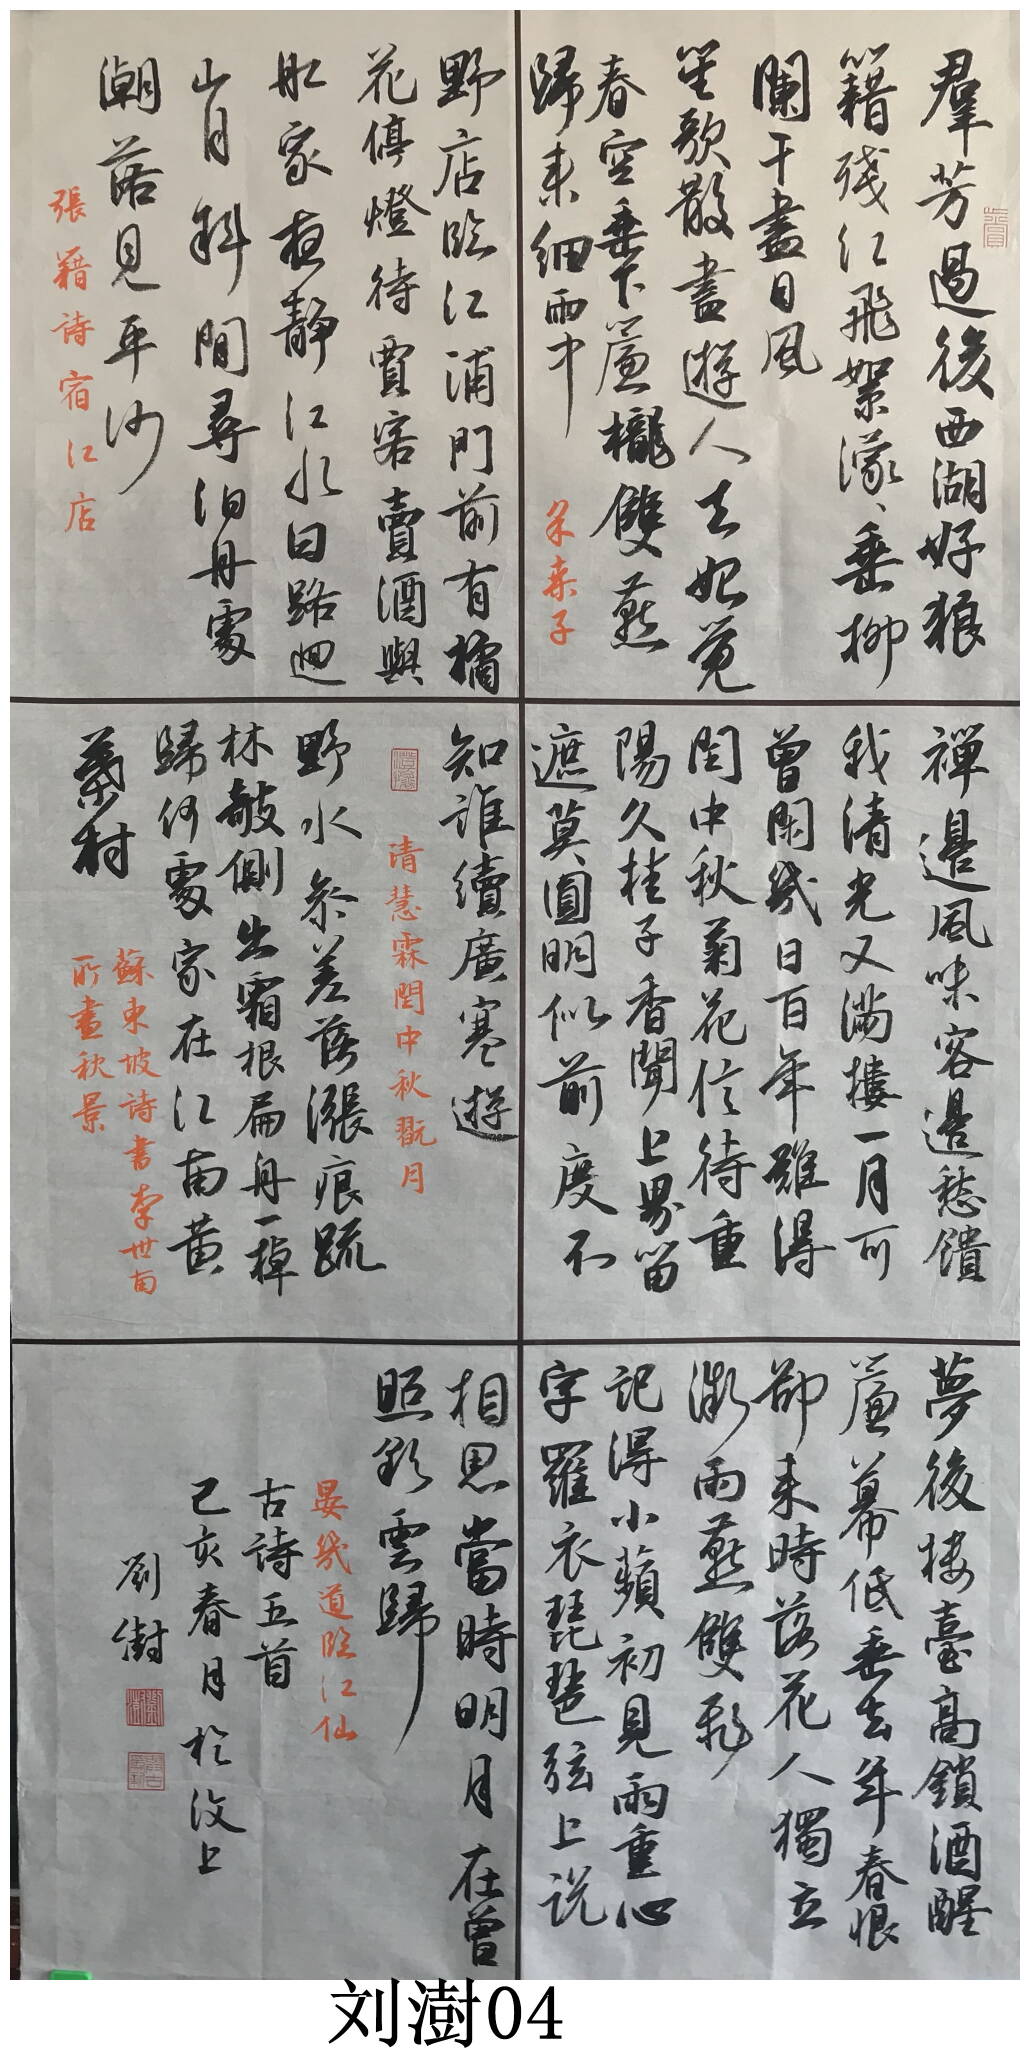 羣芳過後西湖好狼
籍殘红飛絮濛、垂柳
闌干盡日風
笙歌散盡遊人去始覺
春空垂下簾櫳雙燕
歸来细雨中
采桑子
野店臨江浦門前有橘
花停燈待賈客賣酒與
舩家夜靜江水白路迴
山月斜閒尋泊舟處
潮落見平沙
張籍詩宿江店
禪邊風味客邊愁饋
我清光又滿樓一月可
曾閒幾日百年難得
閏中秋菊花信待重
陽久桂子香聞上界留
遮莫圓明似前度不
知誰續廣寒遊
清慧霖閏中秋翫月
野水參差落漲痕疏
林敧側出霜根扁舟一棹
歸何處家在江南黄
葉村
蘇東坡詩書李世南
所畫秋景
夢後樓臺高鎖酒醒
簾幕低垂去年春恨
卻来時落花人獨立
微雨燕雙飛
記得小蘋初見兩重心
字羅衣琵琶弦上说
相思當時明月在曾
照彩雲歸
晏幾道臨江仙
古詩五首
己亥春月於汶上
劉澍
刘澍04